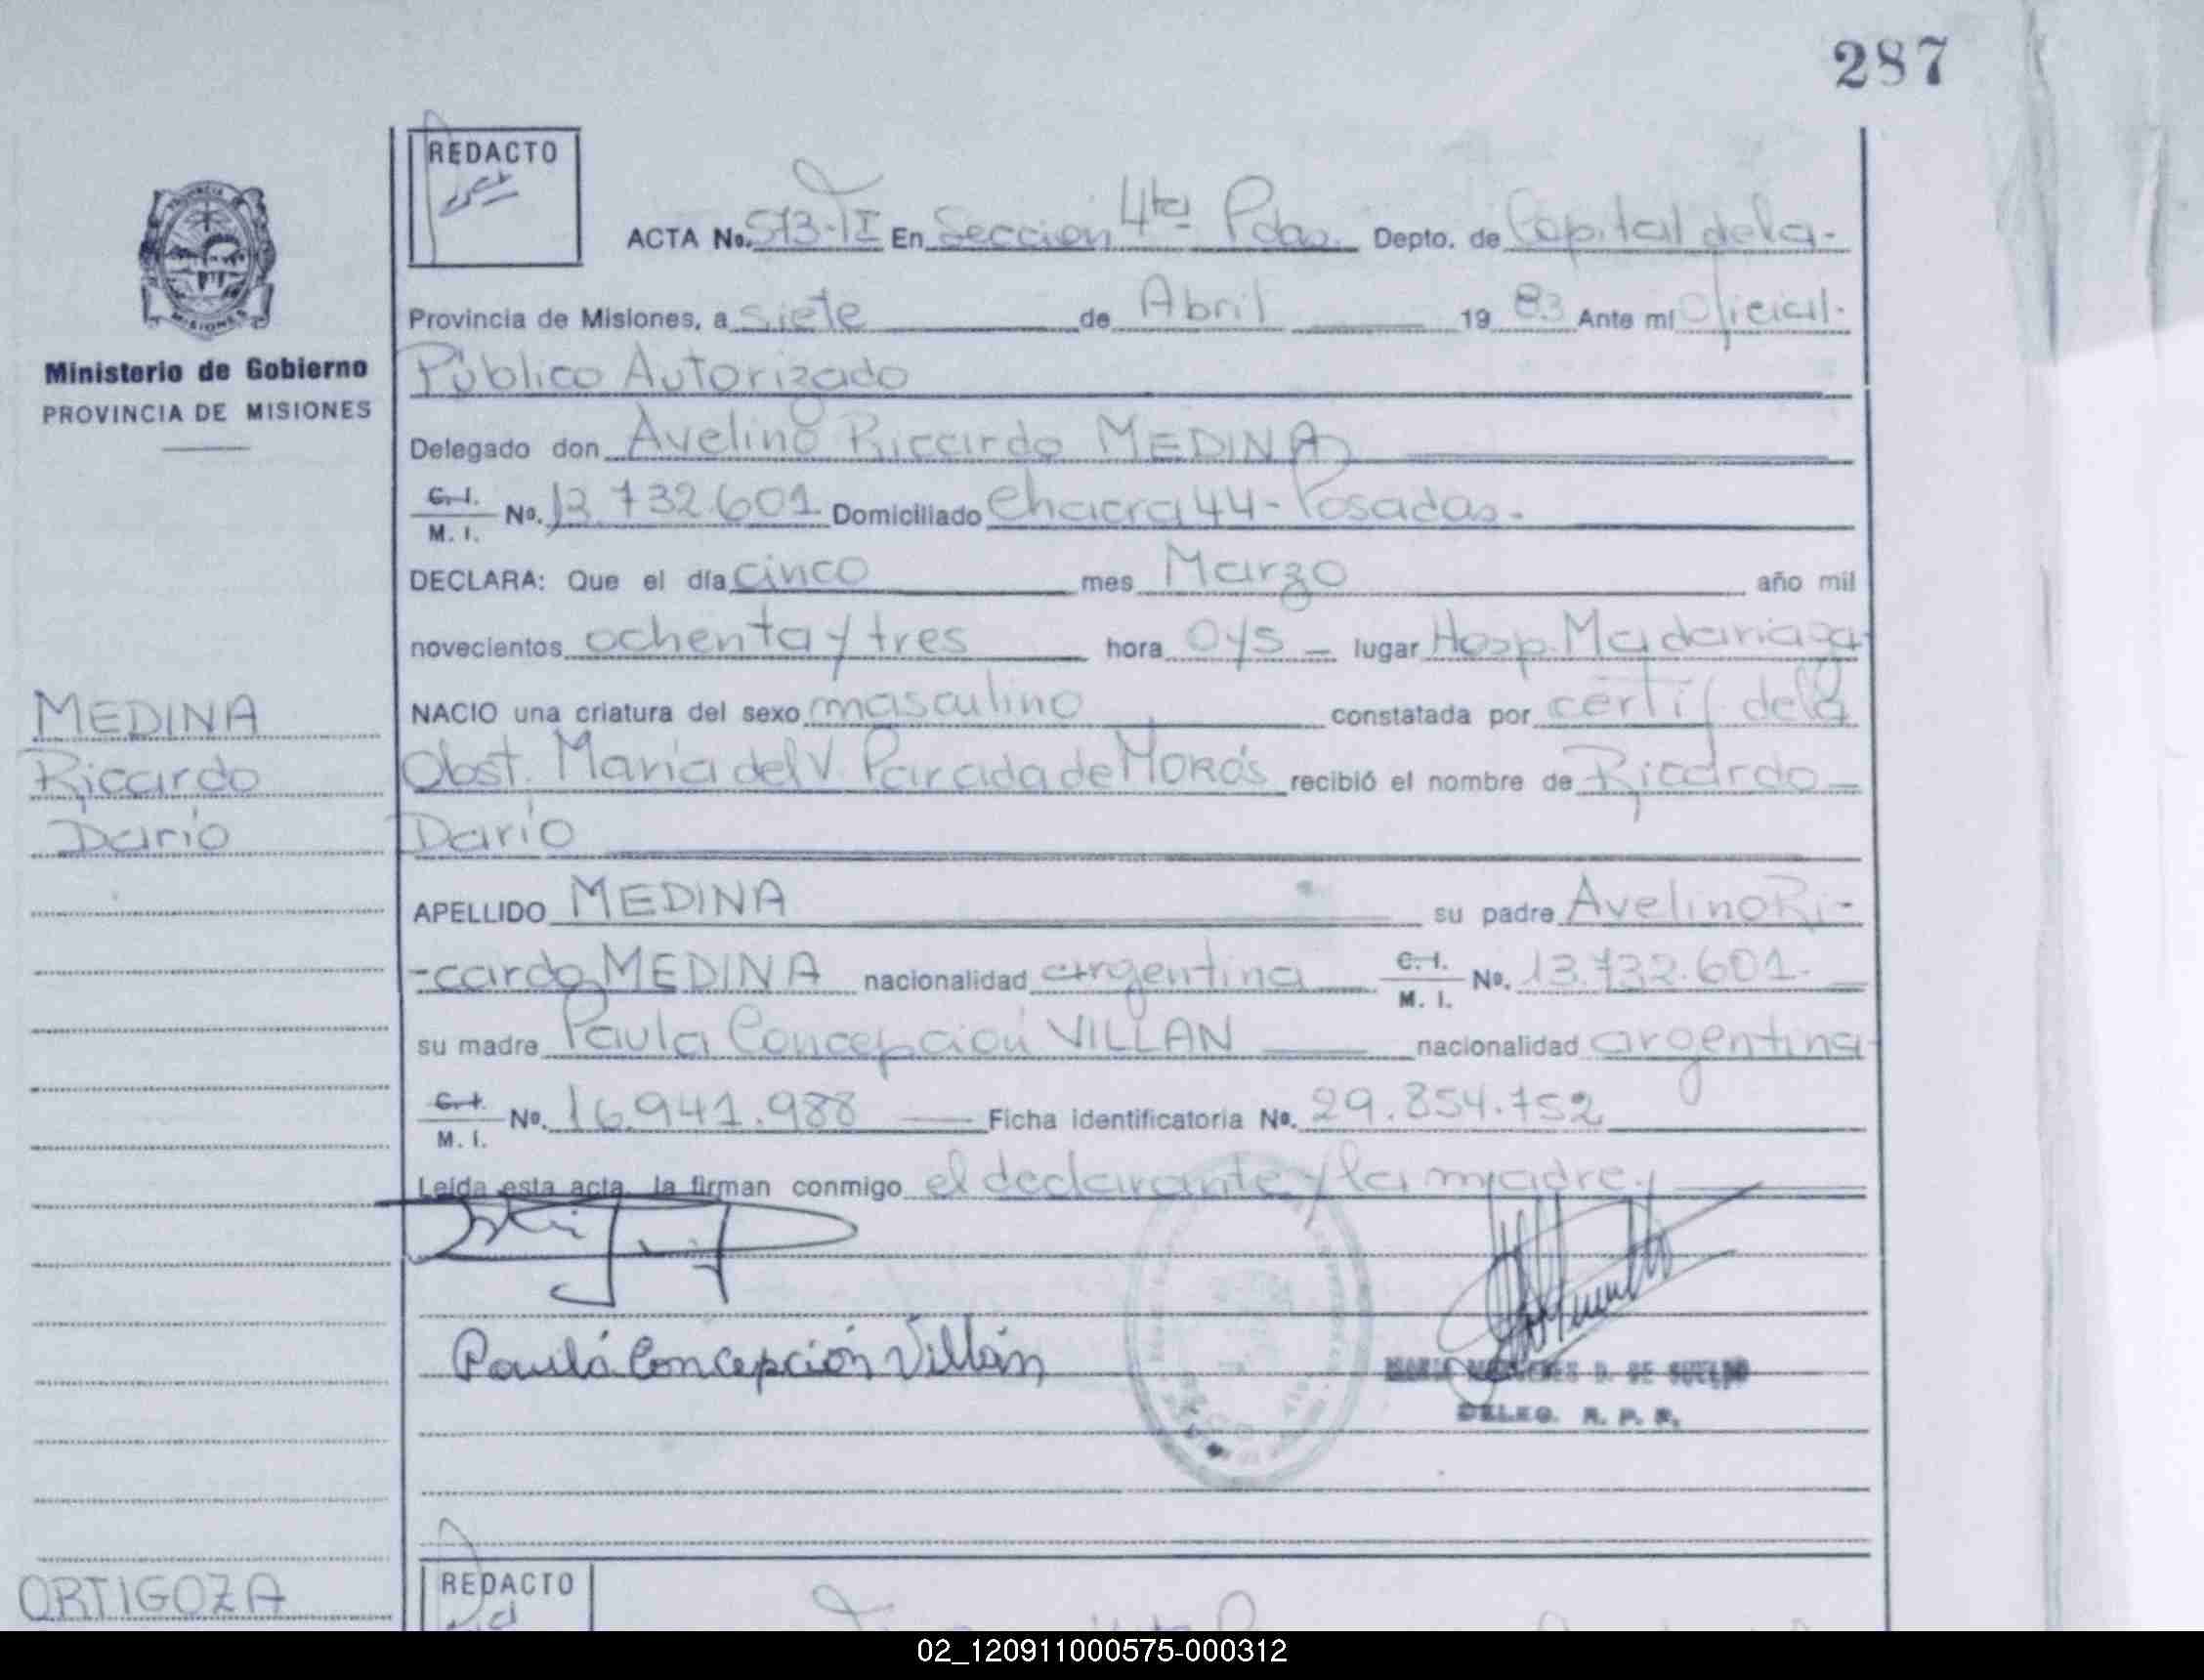 287
REDACTO
ACTA No. 573-TI En Sección 4ta Pdas. Depto. de Capital de la-
Provincia de Misiones, a siete de Abril 19 83 Ante mí Oficial.
Público Autorizado
Ministerio de Gobierno
PROVINCIA DE MISIONES
Delegado don Avelino Ricardo MEDINA
C. I. M. I. No. 13.732.601 Domiciliado Chacra 44 - Posadas.-
DECLARA: Que el día cinco mes Marzo año mil
novecientos ochenta y tres hora 0y5 - lugar Hosp. Madariaga
NACIO una criatura del sexo masculino constatada por certif. de la
Obst. María del V. Parada de MOROS recibió el nombre de Ricardo -
Darío
MEDINA
Ricardo
Darío
APELLIDO MEDINA su padre Avelino Ri-
-cardo MEDINA nacionalidad argentina C. I. M. I. No. 13.732.601.
su madre Paula Concepción VILLAN nacionalidad argentina
C. I. M. I. No. 16.941.988 Ficha identificatoria No. 29.854.752
Leída esta acta, la firman conmigo el declarante y la madre.
Paula Concepción Villán
D. DE
DELEG. R. P. P.
ORTIGOZA
REDACTO
02_120911000575-000312